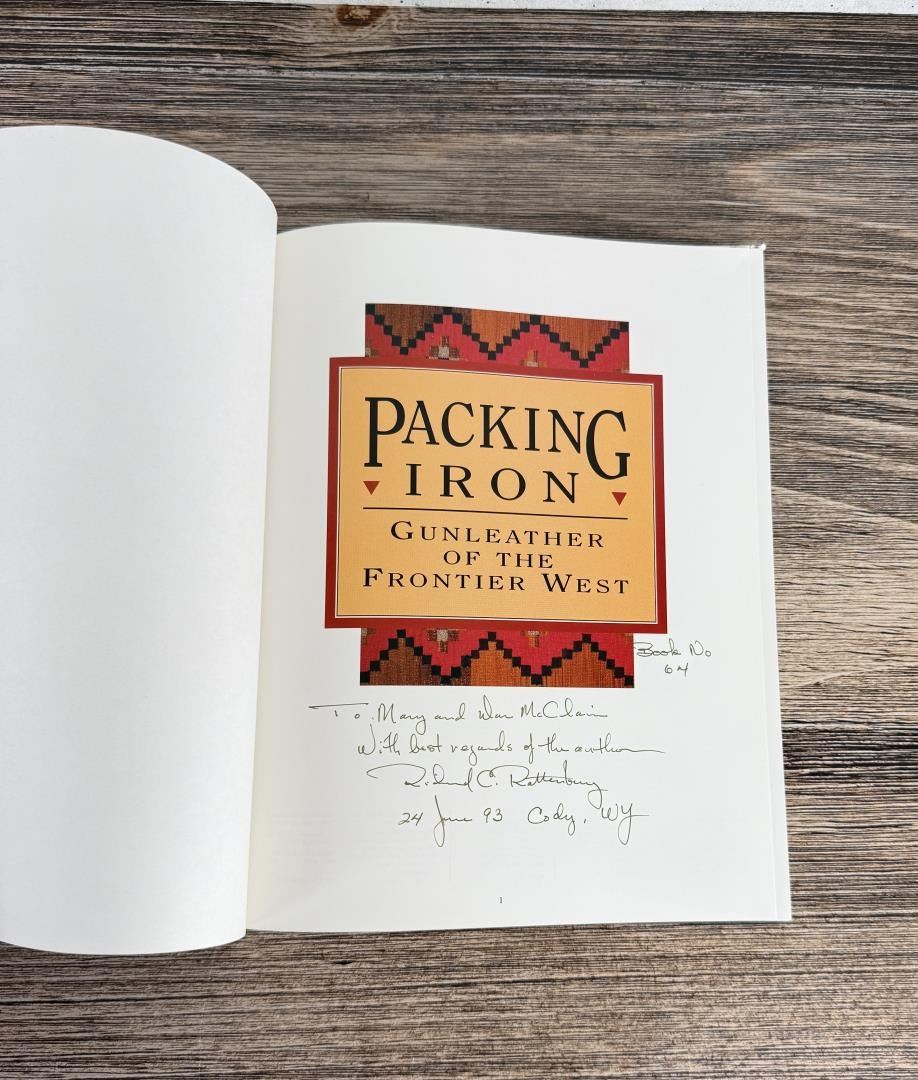 PACKING
IRON
GUNLEATHER
OF THE
FRONTIER WEST
Book No
64
To: Mary and Dan McClain
With best regards of the author
Richard C. Rattenbury
24 June 93 Cody, WY
1